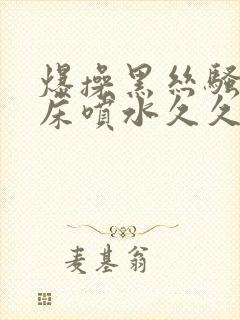 爆操黑丝騷
床噴水久久
麦基翁